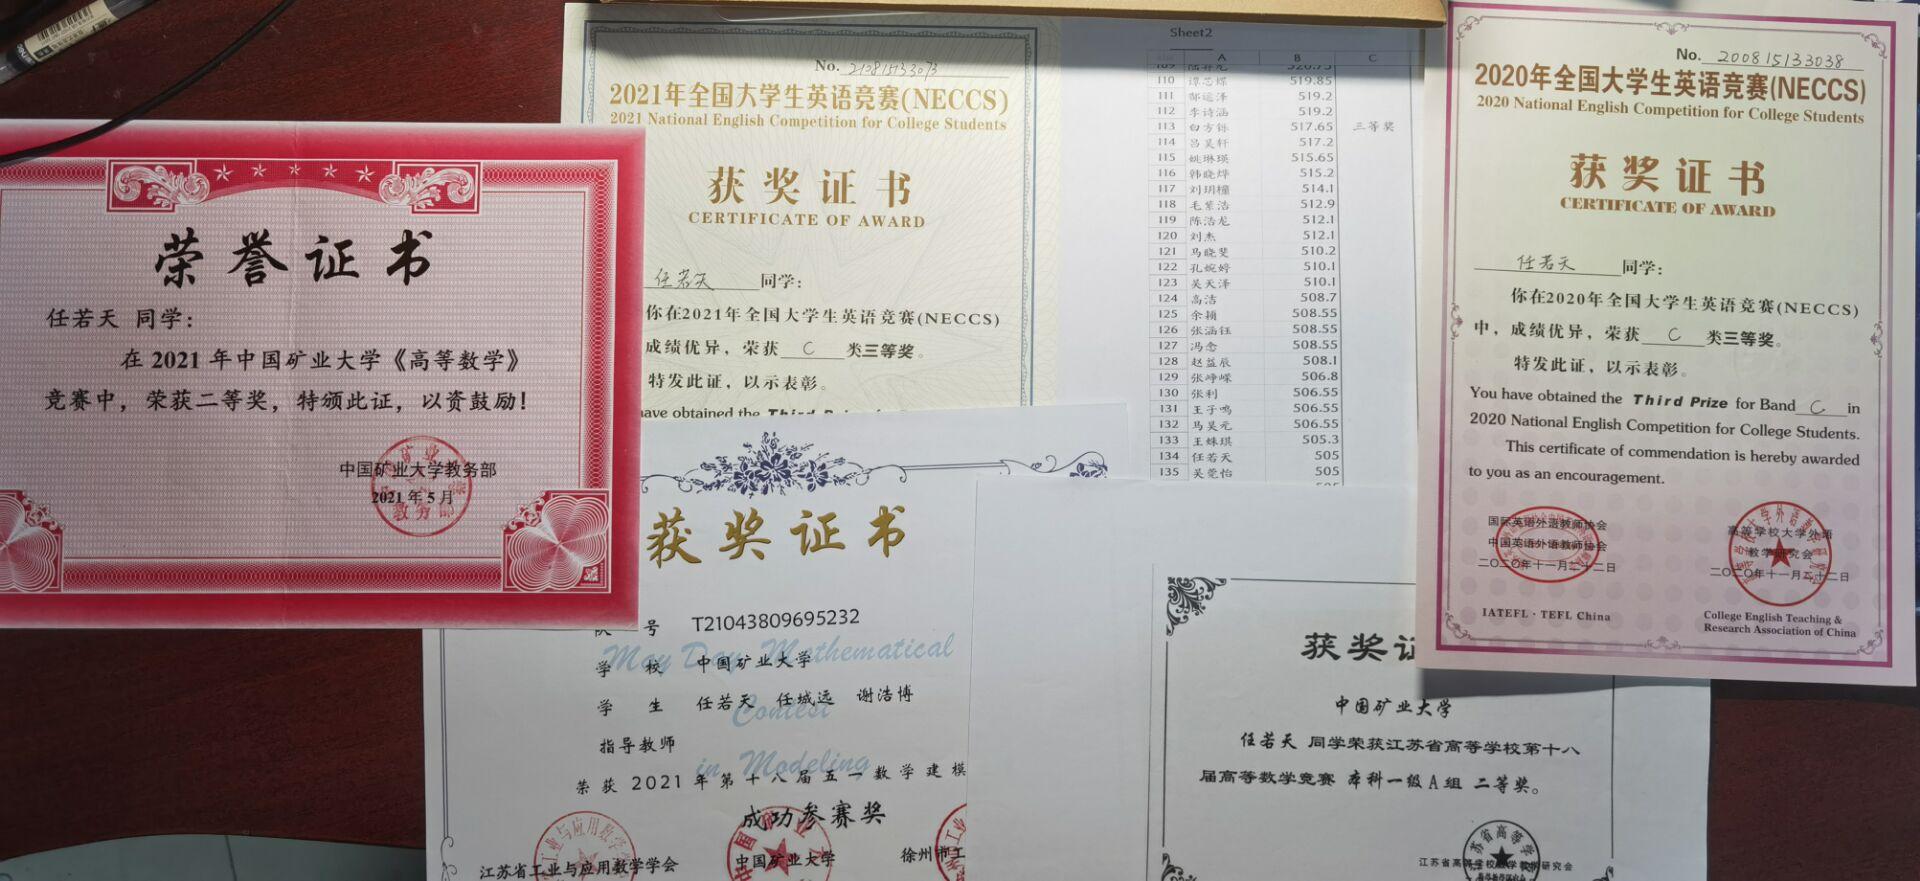 荣誉证书
任若天 同学：
在 2021 年中国矿业大学《高等数学》
竞赛中，荣获二等奖，特颁此证，以资鼓励！
中国矿业大学教务部
2021 年 5 月
No. 210815133073
2021年全国大学生英语竞赛(NECCS)
2021 National English Competition for College Students
获奖证书
CERTIFICATE OF AWARD
任若天 同学：
你在2021年全国大学生英语竞赛(NECCS)
成绩优异，荣获 C 类三等奖。
特发此证，以示表彰。
have obtained the Third Prize
Sheet2
A B C
110 谭芯蝶 519.85
111 郝运泽 519.2
112 李诗涵 519.2
113 白方铄 517.65 三等奖
114 吕昊轩 517.2
115 姚琳瑛 515.65
116 韩晓烨 515.2
117 刘玥橦 514.1
118 毛紫洁 512.9
119 陈浩龙 512.1
120 刘杰 512.1
121 马晓斐 510.2
122 孔婉婷 510.1
123 吴天泽 510.1
124 高洁 508.7
125 余颖 508.55
126 张涵钰 508.55
127 冯念 508.55
128 赵益辰 508.1
129 张峥嵘 506.8
130 张利 506.55
131 王子鸣 506.55
132 马昊元 506.55
133 王姝琪 505.3
134 任若天 505
135 吴莞怡 505
No. 200815133038
2020年全国大学生英语竞赛(NECCS)
2020 National English Competition for College Students
获奖证书
CERTIFICATE OF AWARD
任若天 同学：
你在2020年全国大学生英语竞赛(NECCS)
中，成绩优异，荣获 C 类三等奖。
特发此证，以示表彰。
You have obtained the Third Prize for Band C in
2020 National English Competition for College Students.
This certificate of commendation is hereby awarded
to you as an encouragement.
国际英语外语教师协会
中国英语外语教师协会
二〇二〇年十一月二十二日
IATEFL · TEFL China
高等学校大学外语
教学研究会
二〇二〇年十一月二十二日
College English Teaching &
Research Association of China
获奖证书
队 号 T21043809695232
学 校 中国矿业大学
学 生 任若天 任城远 谢浩博
指导教师
May Day Mathematical
Contest
in Modeling
荣获 2021 年第十八届五一数学建模
成功参赛奖
江苏省工业与应用数学学会
中国矿业大学
徐州市工
获奖证
中国矿业大学
任若天 同学荣获江苏省高等学校第十八
届高等数学竞赛 本科一级A组 二等奖。
江苏省高等学校数学教学研究会